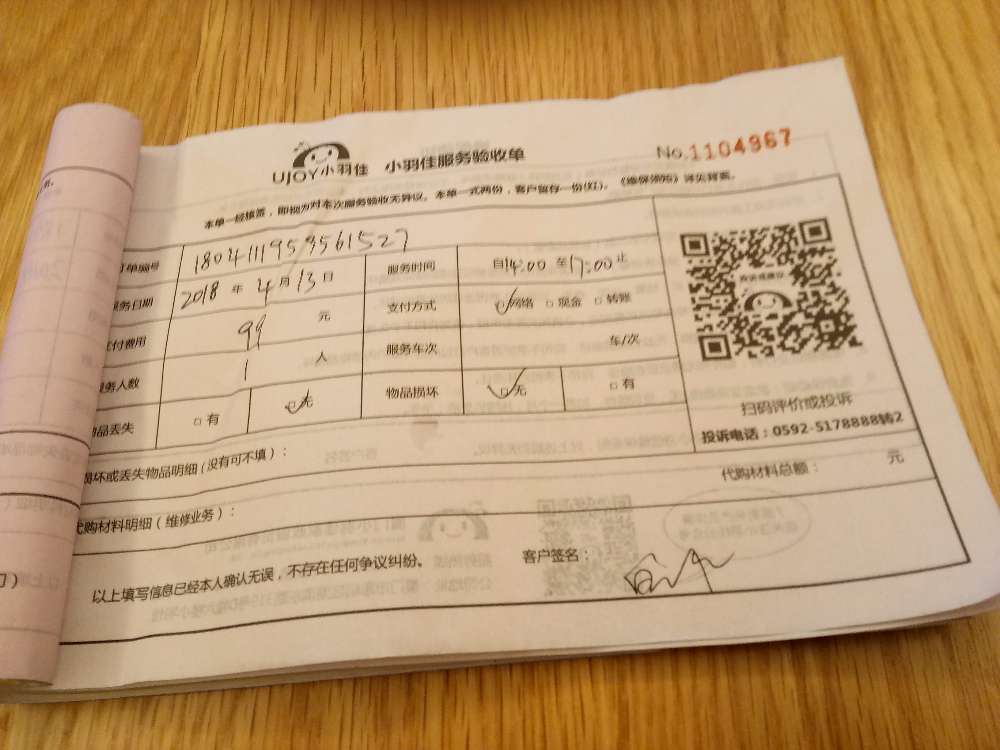 UJOY小羽佳 小羽佳服务验收单 No.1104967
本单一经填签，即视为对本次服务验收无异议。本单一式两份，客户留存一份(红)。《维保须知》详见背面。
订单编号 1804111953561527
服务日期 2018 年 4 月 13 日 服务时间 自14:00 至17:00止
支付费用 99 元 支付方式 ☑网络 □现金 □转账
服务人数 1 人 服务车次 车/次
物品丢失 □有 ☑无 物品损坏 ☑无 □有
投诉或建议
扫码评价或投诉
投诉电话：0592-5178888转2
损坏或丢失物品明细(没有可不填)：
代购材料明细(维修业务)： 代购材料总额： 元
以上填写信息已经本人确认无误，不存在任何争议纠纷。 客户签名：